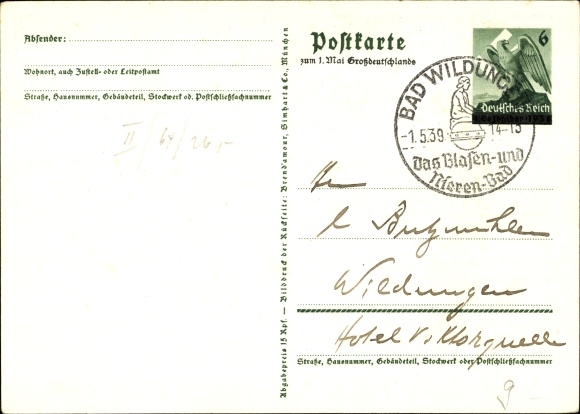 Absender:
Wohnort, auch Zustell- oder Leitpostamt
Straße, Hausnummer, Gebäudeteil, Stockwerk od. Postschließfachnummer
II / 64 / 26,-
Abgabepreis 15 Rpf. — Bilddruck der Rückseite: Brend'amour, Simhart & Co., München
Postkarte
zum 1. Mai Großdeutschlands
6
Deutsches Reich
BAD WILDUNGEN
-1.5.39 14-15
das Blasen- und
Nieren-Bad
Wildungen
Hotel Viktorquelle
Straße, Hausnummer, Gebäudeteil, Stockwerk oder Postschließfachnummer
9